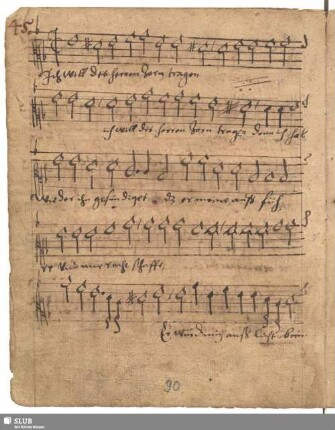 45.
Ich will des herren Zorn tragen
ich will des herren Zorn tragen denn ich hab
wieder ihn gesündiget dz er meine aus führ
und mir recht schaffe
Er wird mich ans licht bringen
90
SLUB
Wir führen Wissen.